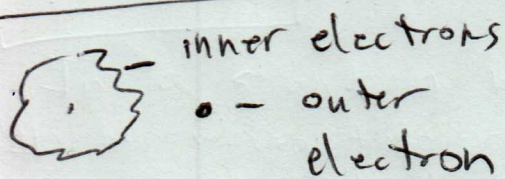 - inner electrons
- outer
electron